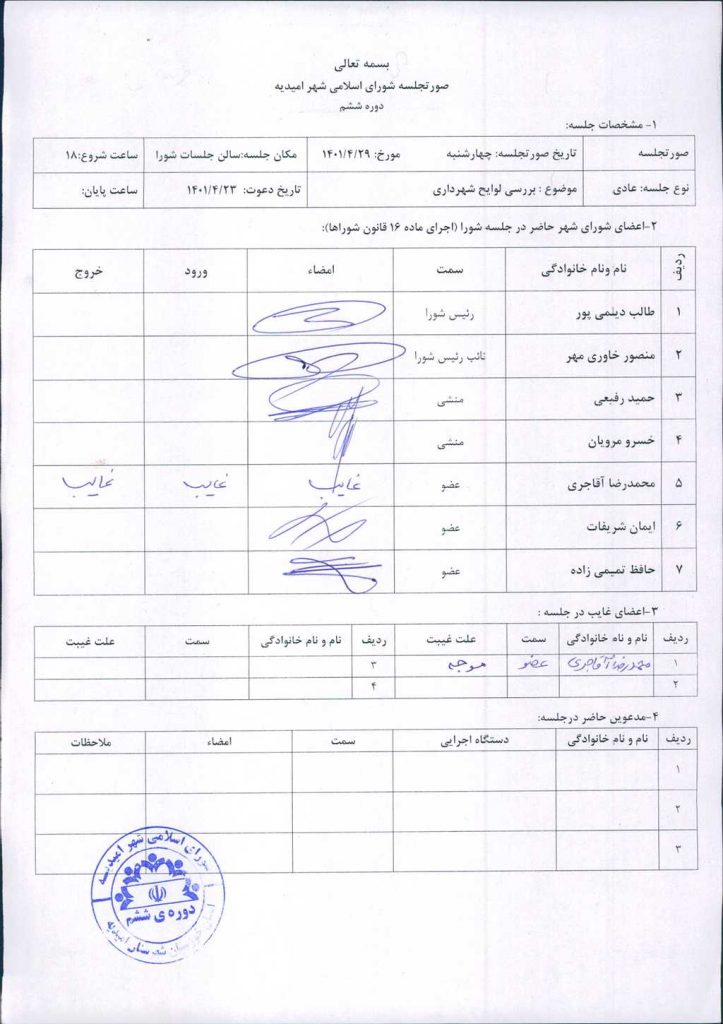 بسمه تعالی
صورتجلسه شورای اسلامی شهر امیدیه
دوره ششم
۱- مشخصات جلسه:
صورتجلسه تاریخ صورتجلسه: چهارشنبه مورخ: ۱۴۰۱/۴/۲۹ مکان جلسه:سالن جلسات شورا ساعت شروع:۱۸
نوع جلسه: عادی موضوع : بررسی لوایح شهرداری تاریخ دعوت: ۱۴۰۱/۴/۲۳ ساعت پایان:
۲-اعضای شورای شهر حاضر در جلسه شورا (اجرای ماده ۱۶ قانون شوراها):
ردیف نام ونام خانوادگی سمت امضاء ورود خروج
۱ طالب دیلمی پور رئیس شورا
۲ منصور خاوری مهر نائب رئیس شورا
۳ حمید رفیعی منشی
۴ خسرو مرویان منشی
۵ محمدرضا آقاجری عضو غایب غایب غایب
۶ ایمان شریفات عضو
۷ حافظ تمیمی زاده عضو
۳-اعضای غایب در جلسه :
ردیف نام و نام خانوادگی سمت علت غیبت ردیف نام و نام خانوادگی سمت علت غیبت
۱ محمدرضا آقاجری عضو موجه ۳
۲ ۴
۴-مدعوین حاضر درجلسه:
ردیف نام و نام خانوادگی دستگاه اجرایی سمت امضاء ملاحظات
۱
۲
۳
شورای اسلامی شهر امیدیه
دوره ی ششم
استان خوزستان شهرستان امیدیه